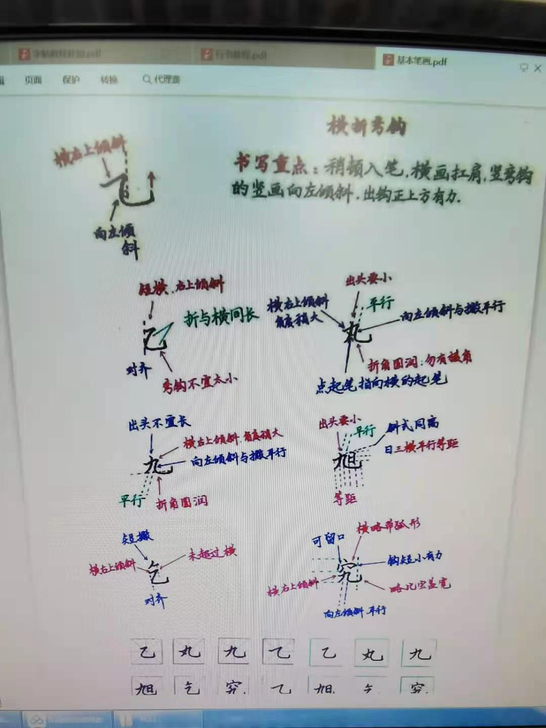 行书教程.pdf
基本笔画.pdf
页面 保护 转换 代理查
横折弯钩
横右上倾斜
书写重点：稍顿入笔，横画扛肩，竖弯钩
的竖画向左倾斜，出钩正上方有力。
向左倾
斜
短横、右上倾斜
折与横同长
乙
对齐
弯钩不宜太小
出头要小
横右上倾斜
角度稍大
平行
向左倾斜与撇平行
丸
折角圆润，勿有棱角
点起笔指向横的起笔
出头不宜长
横右上倾斜，角度稍大
向左倾斜与撇平行
九
平行
折角圆润
出头要小
平行
斜式同高
日三横平行等距
旭
等距
短撇
横右上倾斜
未超过横
乞
对齐
可留口
横略带弧形
钩短小有力
究
横右上倾斜
略比宝盖宽
向左倾斜平行
乙 丸 九 乙 乙 丸 九
旭 乞 究 乙 旭 乞 究